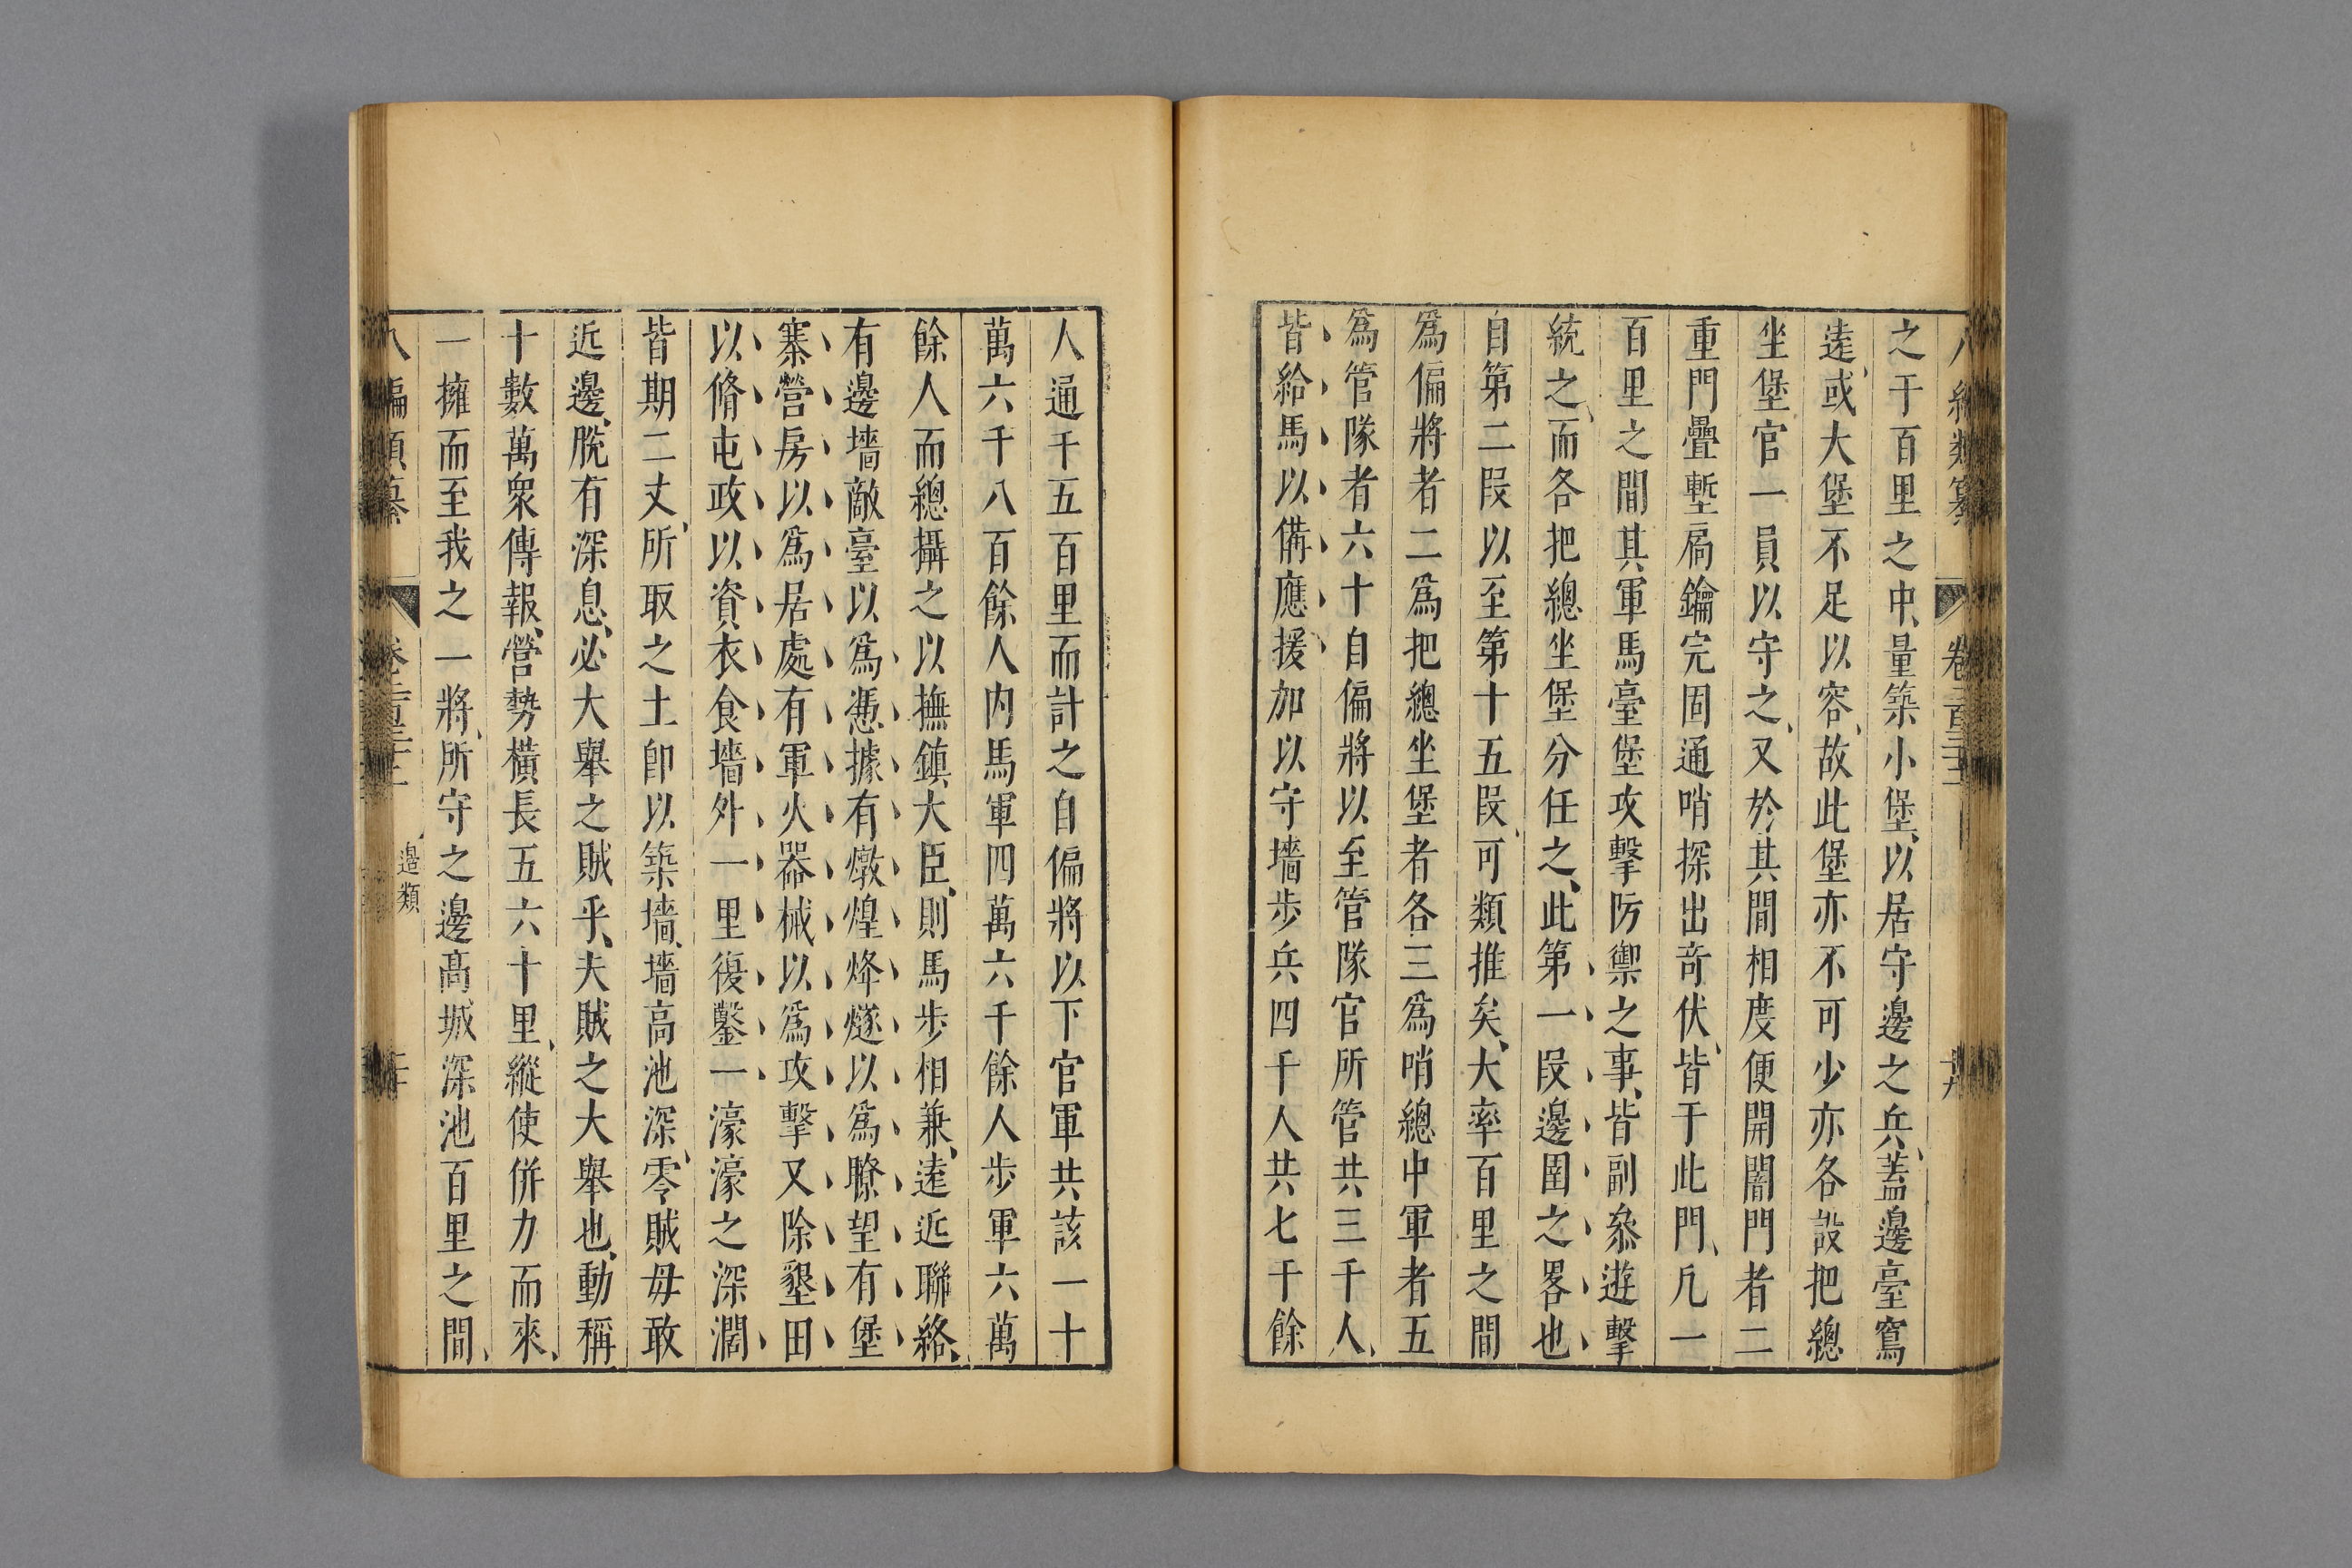 之于百里之中、量築小堡、以居守邊之兵、蓋邊臺窵
遠、或大堡不足以容、故此堡亦不可少亦各設把總
坐堡官一員以守之、又於其間相度便開闇門者二
重門疊塹扃鑰完固通哨探出奇伏、皆于此門、凡一
百里之間其軍馬臺堡攻擊防禦之事、皆副叅遊擊
統之、而各把總坐堡分任之、此第一段邊圉之畧也
自第二段以至第十五段、可類推矣、大率百里之間
爲偏將者二爲把總坐堡者各三爲哨總中軍者五
爲管隊者六十自偏將以至管隊官所管共三千人、
皆給馬以備應援加以守墻步兵四千人共七千餘
人通千五百里而計之自偏將以下官軍共該一十
萬六千八百餘人内馬軍四萬六千餘人步軍六萬
餘人而總攝之以撫鎮大臣、則馬步相兼、遠近聯絡、
有邊墻敵臺以爲憑據有燉煌烽燧以爲瞭望有堡
寨營房以爲居處有軍火器械以爲攻擊又除墾田
以脩屯政以資衣食墻外一里復鑿一濠濠之深濶
皆期二丈、所取之土卽以築墻、墻高池深、零賊毋敢
近邊、脫有深息、必大舉之賊乎、夫賊之大舉也、動稱
十數萬衆傳報、營勢橫長五六十里、縱使併力而來、
一擁而至我之一將、所守之邊高城深池百里之間、
八編類纂
邊類